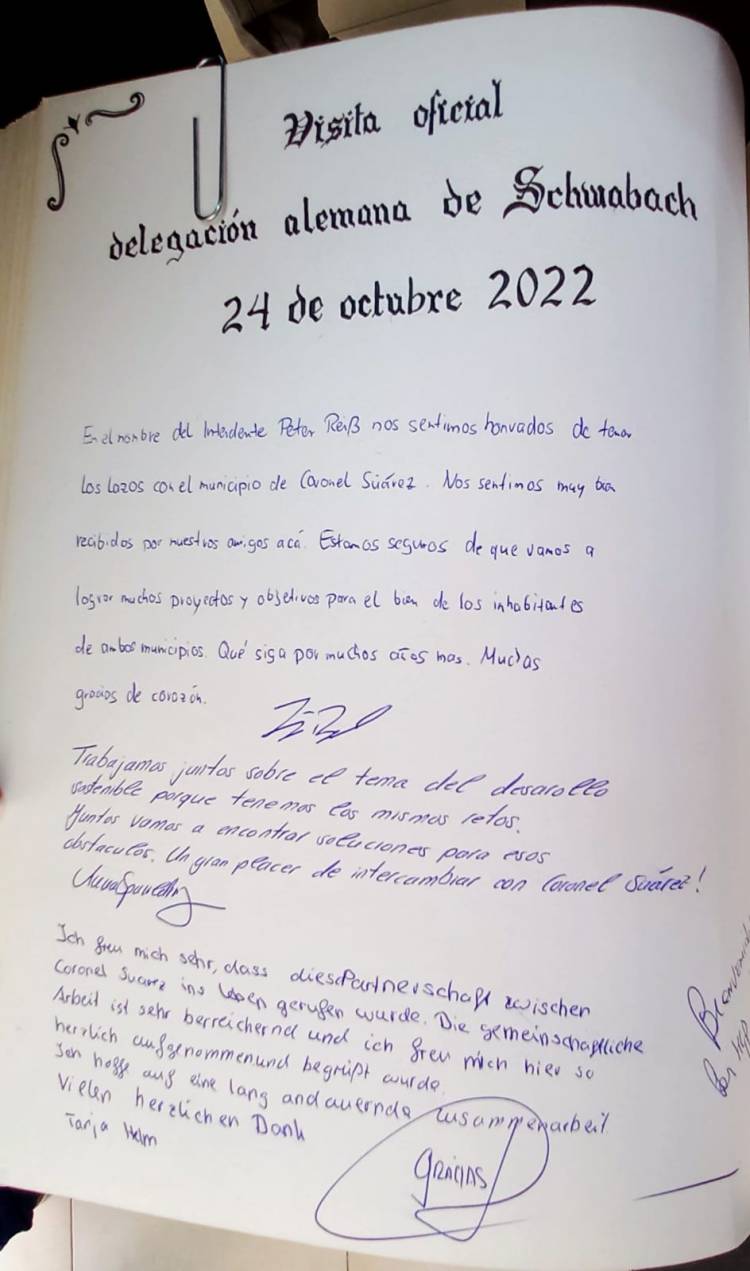 Visita oficial
delegación alemana de Schwabach
24 de octubre 2022
En el nombre del Intendente Peter Reiß nos sentimos honrados de tener
los lazos con el municipio de Coronel Suárez. Nos sentimos muy bien
recibidos por nuestros amigos acá. Estamos seguros de que vamos a
lograr muchos proyectos y objetivos para el bien de los inhabitantes
de ambos municipios. Qué siga por muchos años mas. Muchas
gracias de corazón.
Trabajamos juntos sobre el tema del desarollo
sostenible porque tenemos los mismos retos.
Juntos vamos a encontrar soluciones para esos
obstaculos. Un gran placer de intercambiar con Coronel Suárez!
Ich freu mich sehr, dass dies Partnerschaft zwischen
Coronel Suarez ins leben gerufen wurde. Die gemeinschaftliche
Arbeit ist sehr berreichernd und ich freu mich hier so
herzlich aufgenommen und begrüßt wurde.
Ich hoffe auf eine lang andauernde zusammenarbeit
Vielen herzlichen Dank
Tanja Helm
GRACIAS